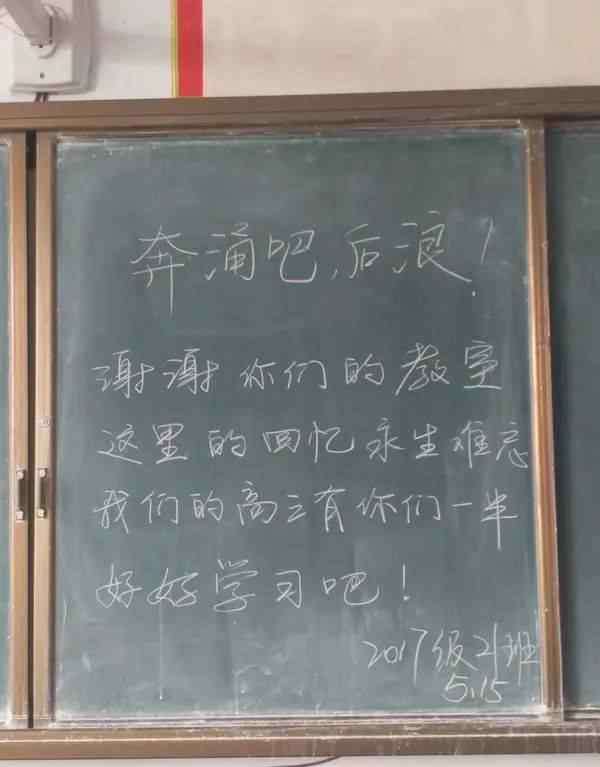 奔涌吧,后浪!
谢谢你们的教室
这里的回忆永生难忘
我们的高三有你们一半
好好学习吧!
2017级21班
5.15